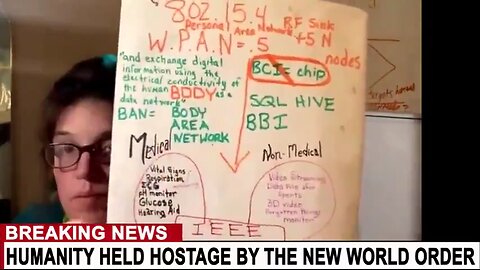 802.15.4
RF Sink
Personal Area Network
W.P.A.N = .5 +5 N
nodes
"and exchange digital
information using the
electrical conductivity of
the human BODY as a
data network"
BCI = chip
SQL HIVE
BBI
BAN= BODY
AREA
NETWORK
Medical
Non-Medical
Vital Signs
Respiration
ECG
pH monitor
Glucose
Hearing Aid
Video Streaming
3D video
monitor
IEEE
targets
BREAKING NEWS
HUMANITY HELD HOSTAGE BY THE NEW WORLD ORDER